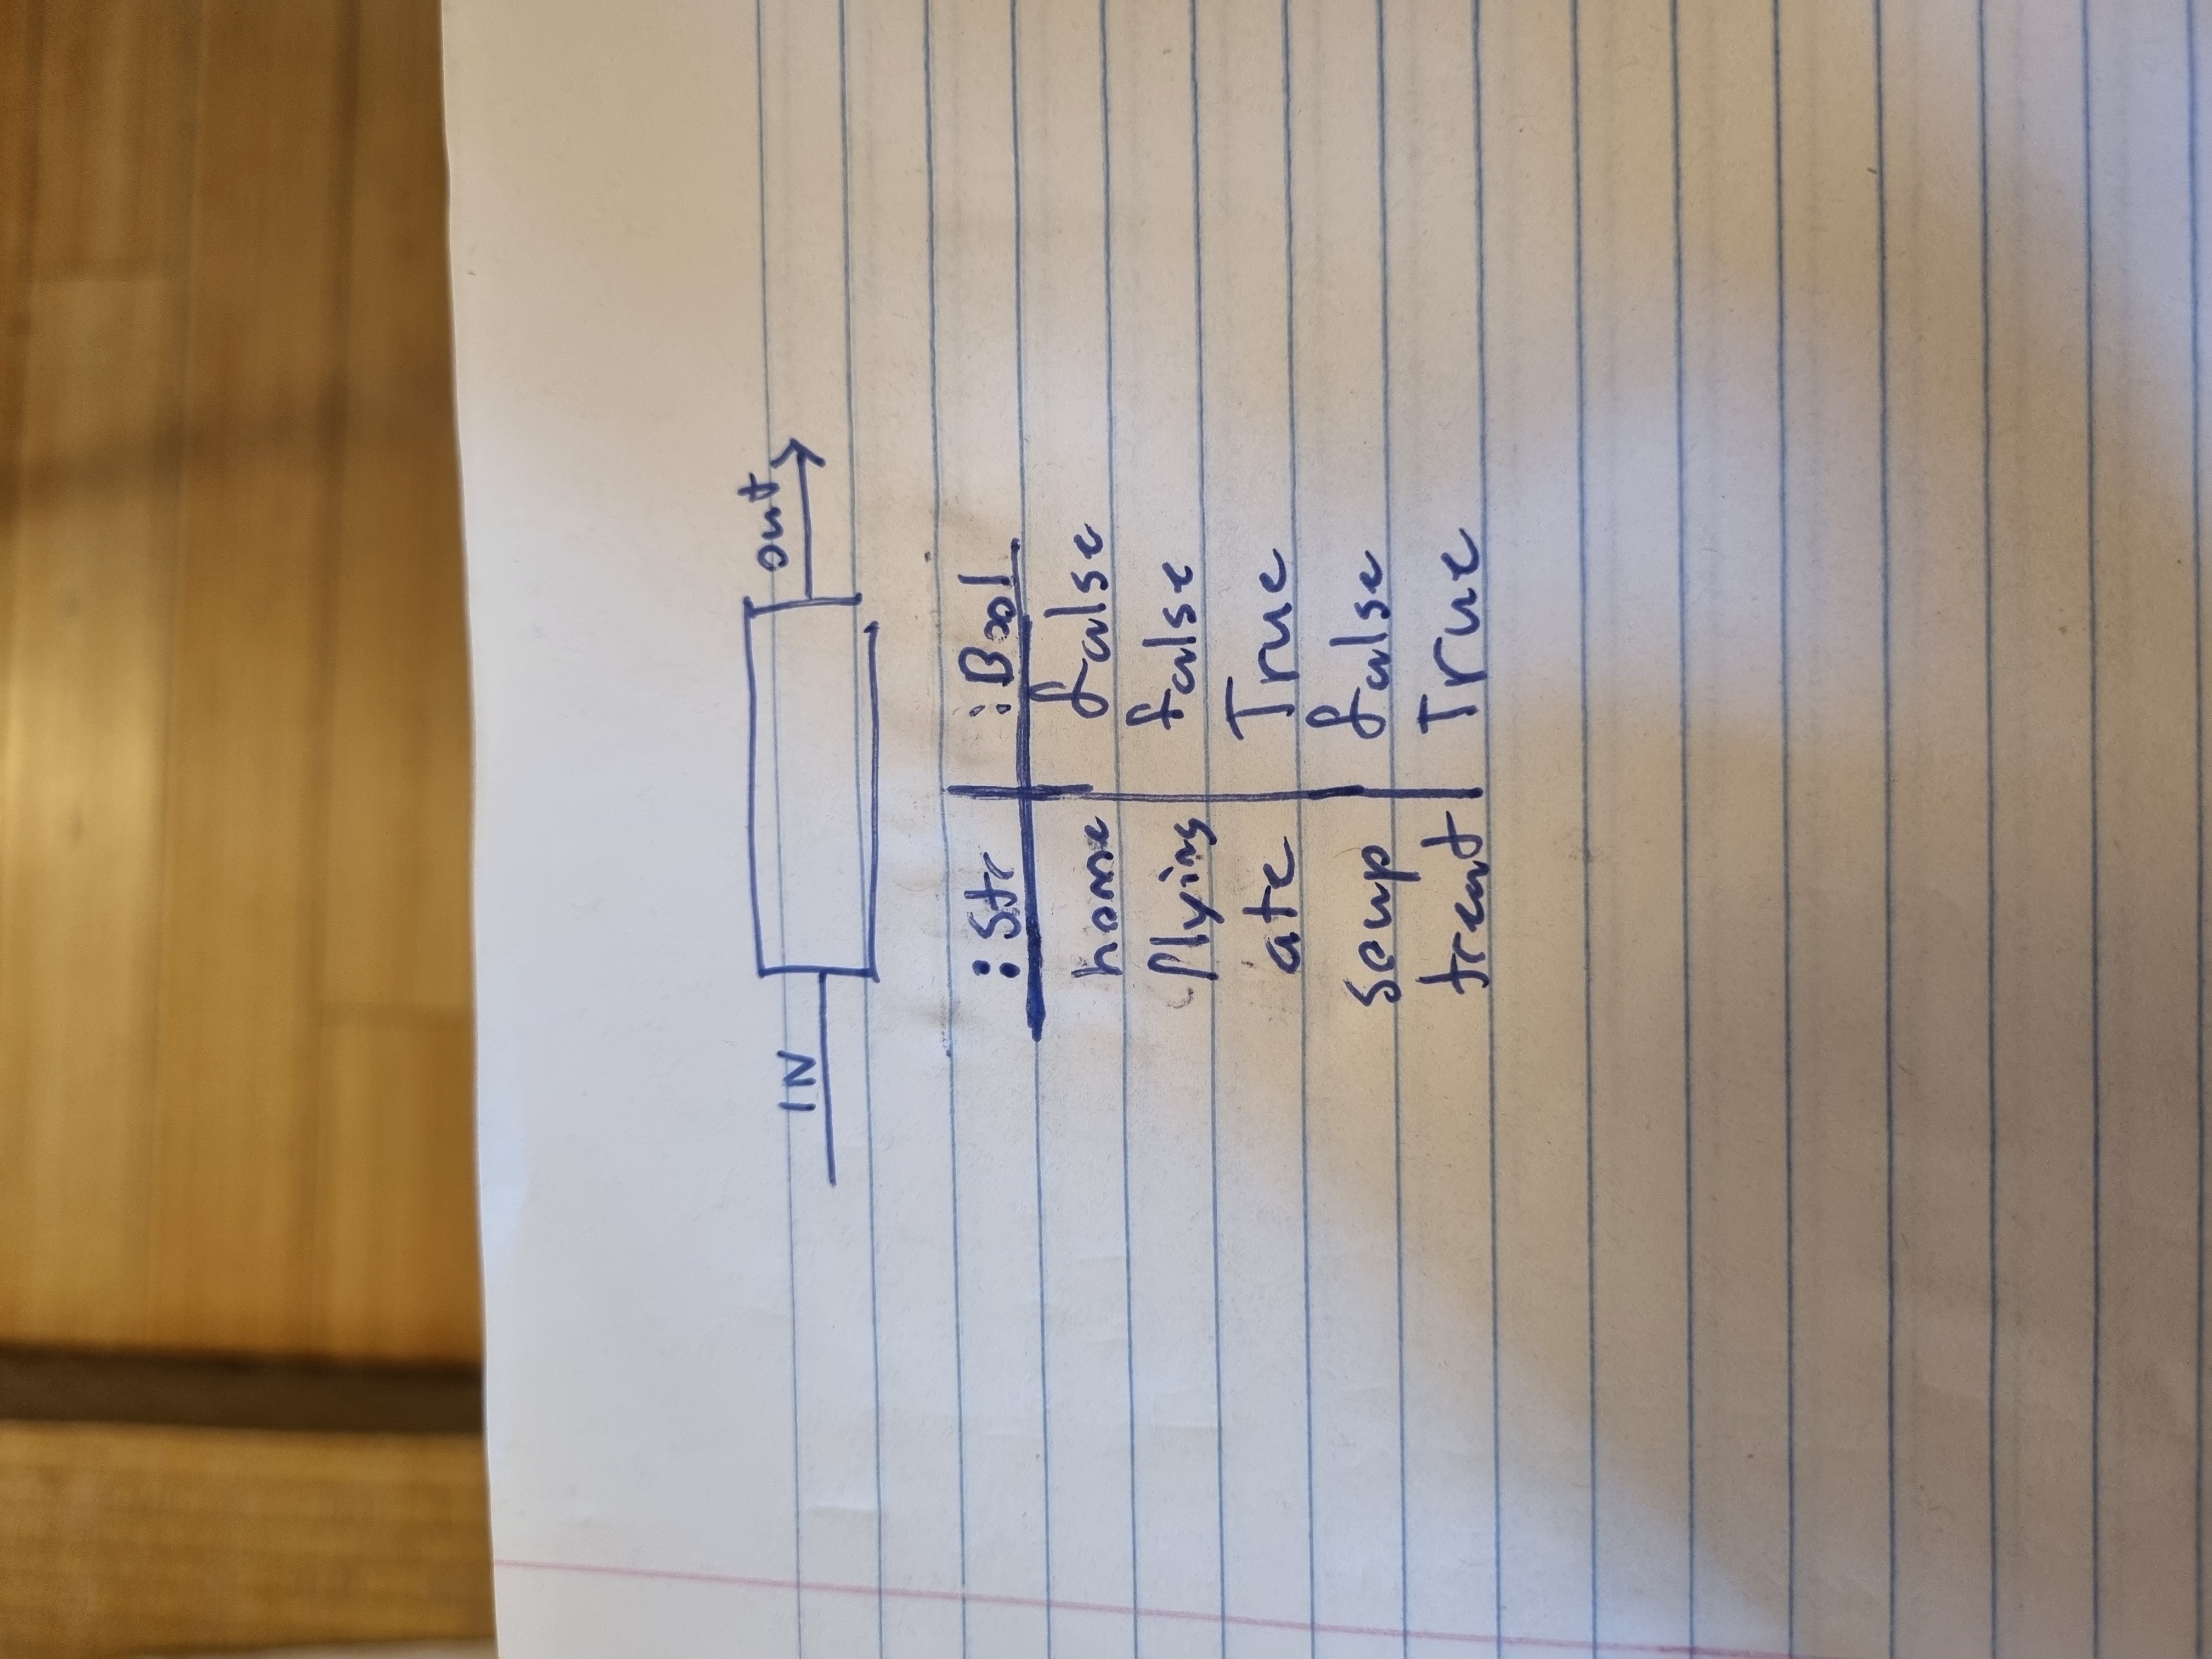 IN out
:Str :Bool
home false
flying false
ate True
soup false
treat True